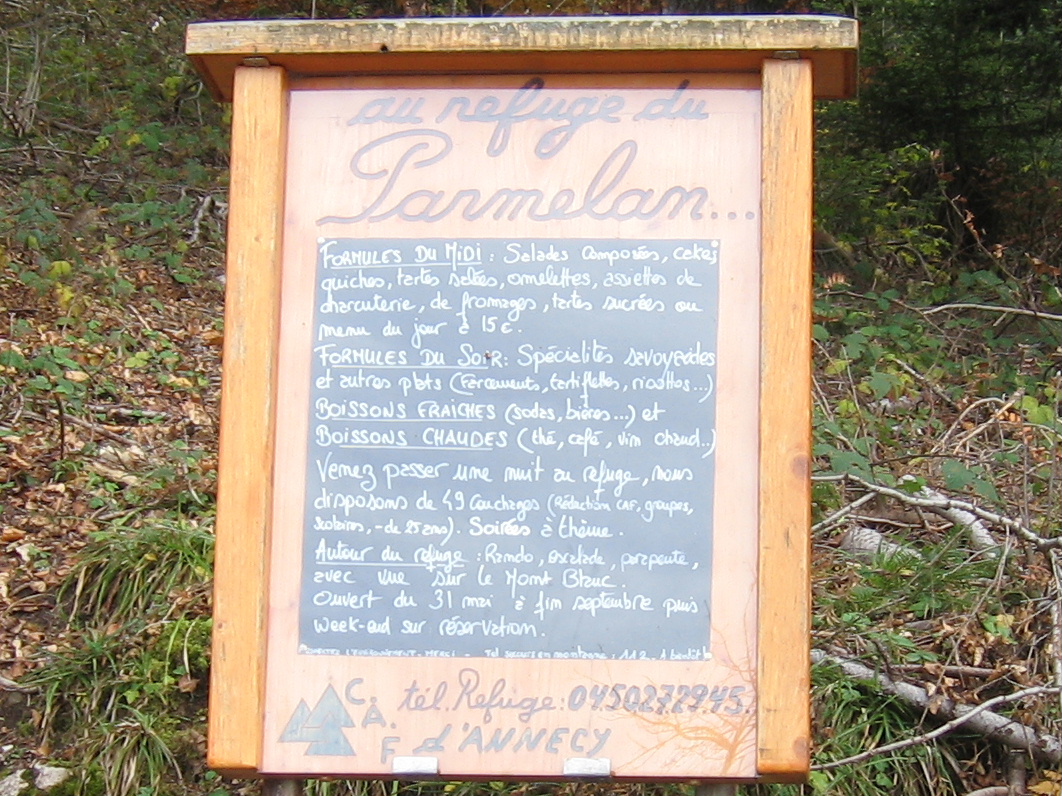 au refuge du
Parmelan...
FORMULES DU MIDI : Salades Composées, cakes
quiches, tartes salées, omelettes, assiettes de
charcuterie, de fromages, tartes sucrées ou
menu du jour à 15€.
FORMULES DU SOIR : Spécialités savoyardes
et autres plats (farcements, tartiflettes, risottos...)
BOISSONS FRAICHES (sodas, bières...) et
BOISSONS CHAUDES (thé, café, vin chaud..)
Venez passer une nuit au refuge, nous
disposons de 49 Couchages (Réduction CAF, groupes,
scolaires, - de 25 ans). Soirées à thème.
Autour du refuge : Rando, escalade, parapente,
avec vue sur le Mont Blanc.
Ouvert du 31 mai à fin septembre puis
week-end sur réservation.
L'ENVIRONNEMENT. MERCI - Tél secours en montagne : 112. A bientôt
C.A.F tél. Refuge: 04.50.27.29.45.
d'ANNECY